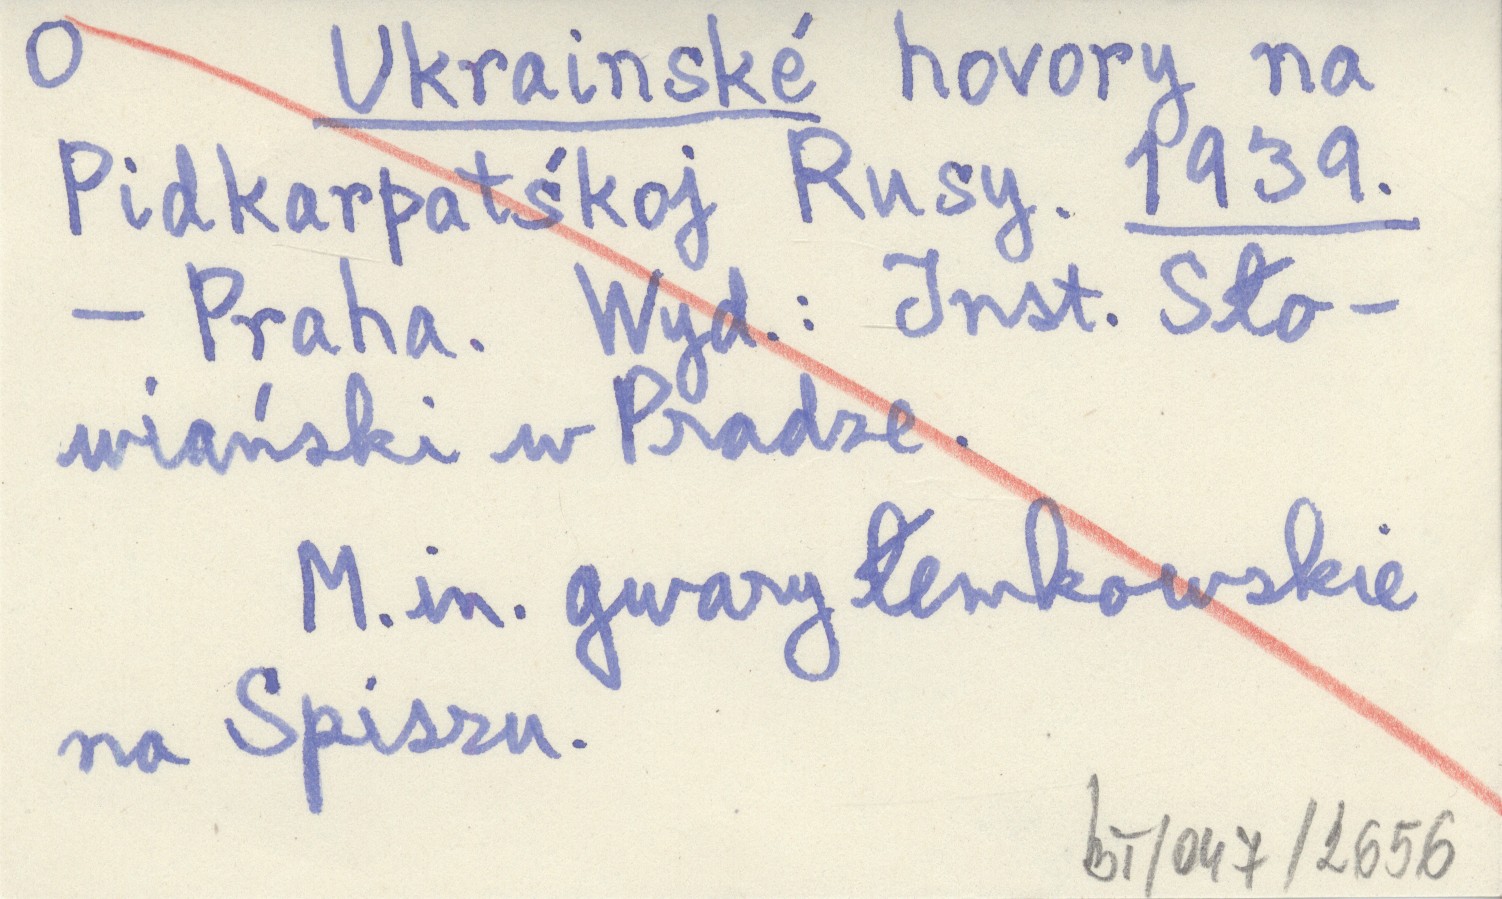 O Ukrainské hovory na
Pidkarpatśkoj Rusy. 1939.
– Praha. Wyd.: Inst. Sło-
wiański w Pradze.
M.in. gwary łemkowskie
na Spiszu.
/047/2656